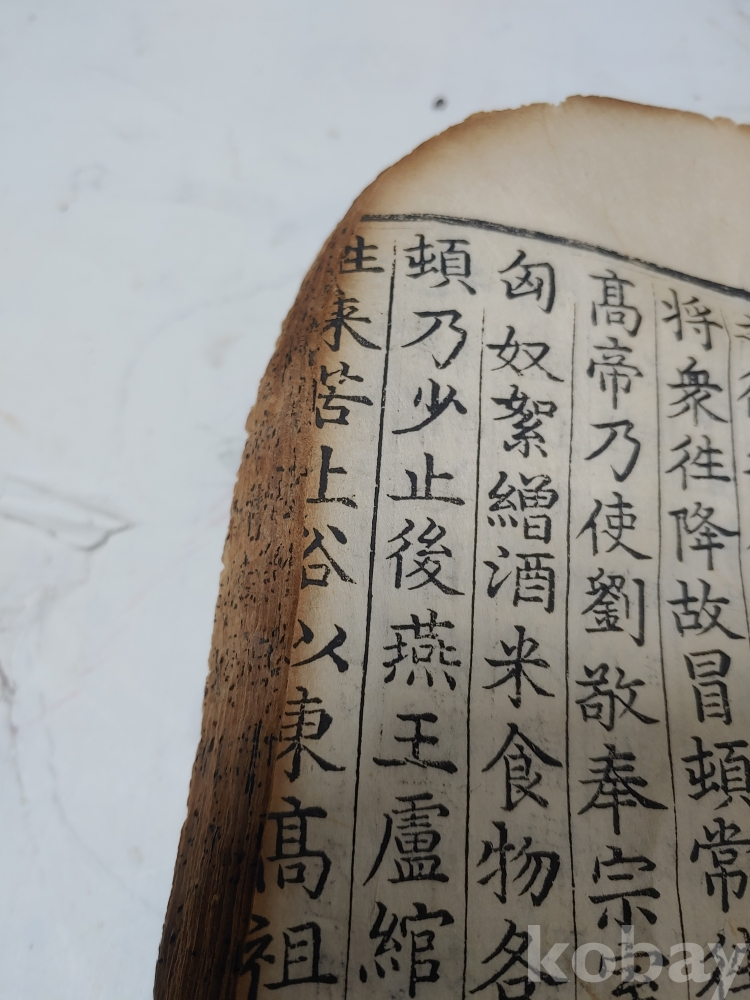 将衆徃降故冒頓常徃
髙帝乃使劉敬奉宗室
匈奴絮繒酒米食物各
頓乃少止後燕王盧綰
徃来苦上谷以東髙祖
kobay